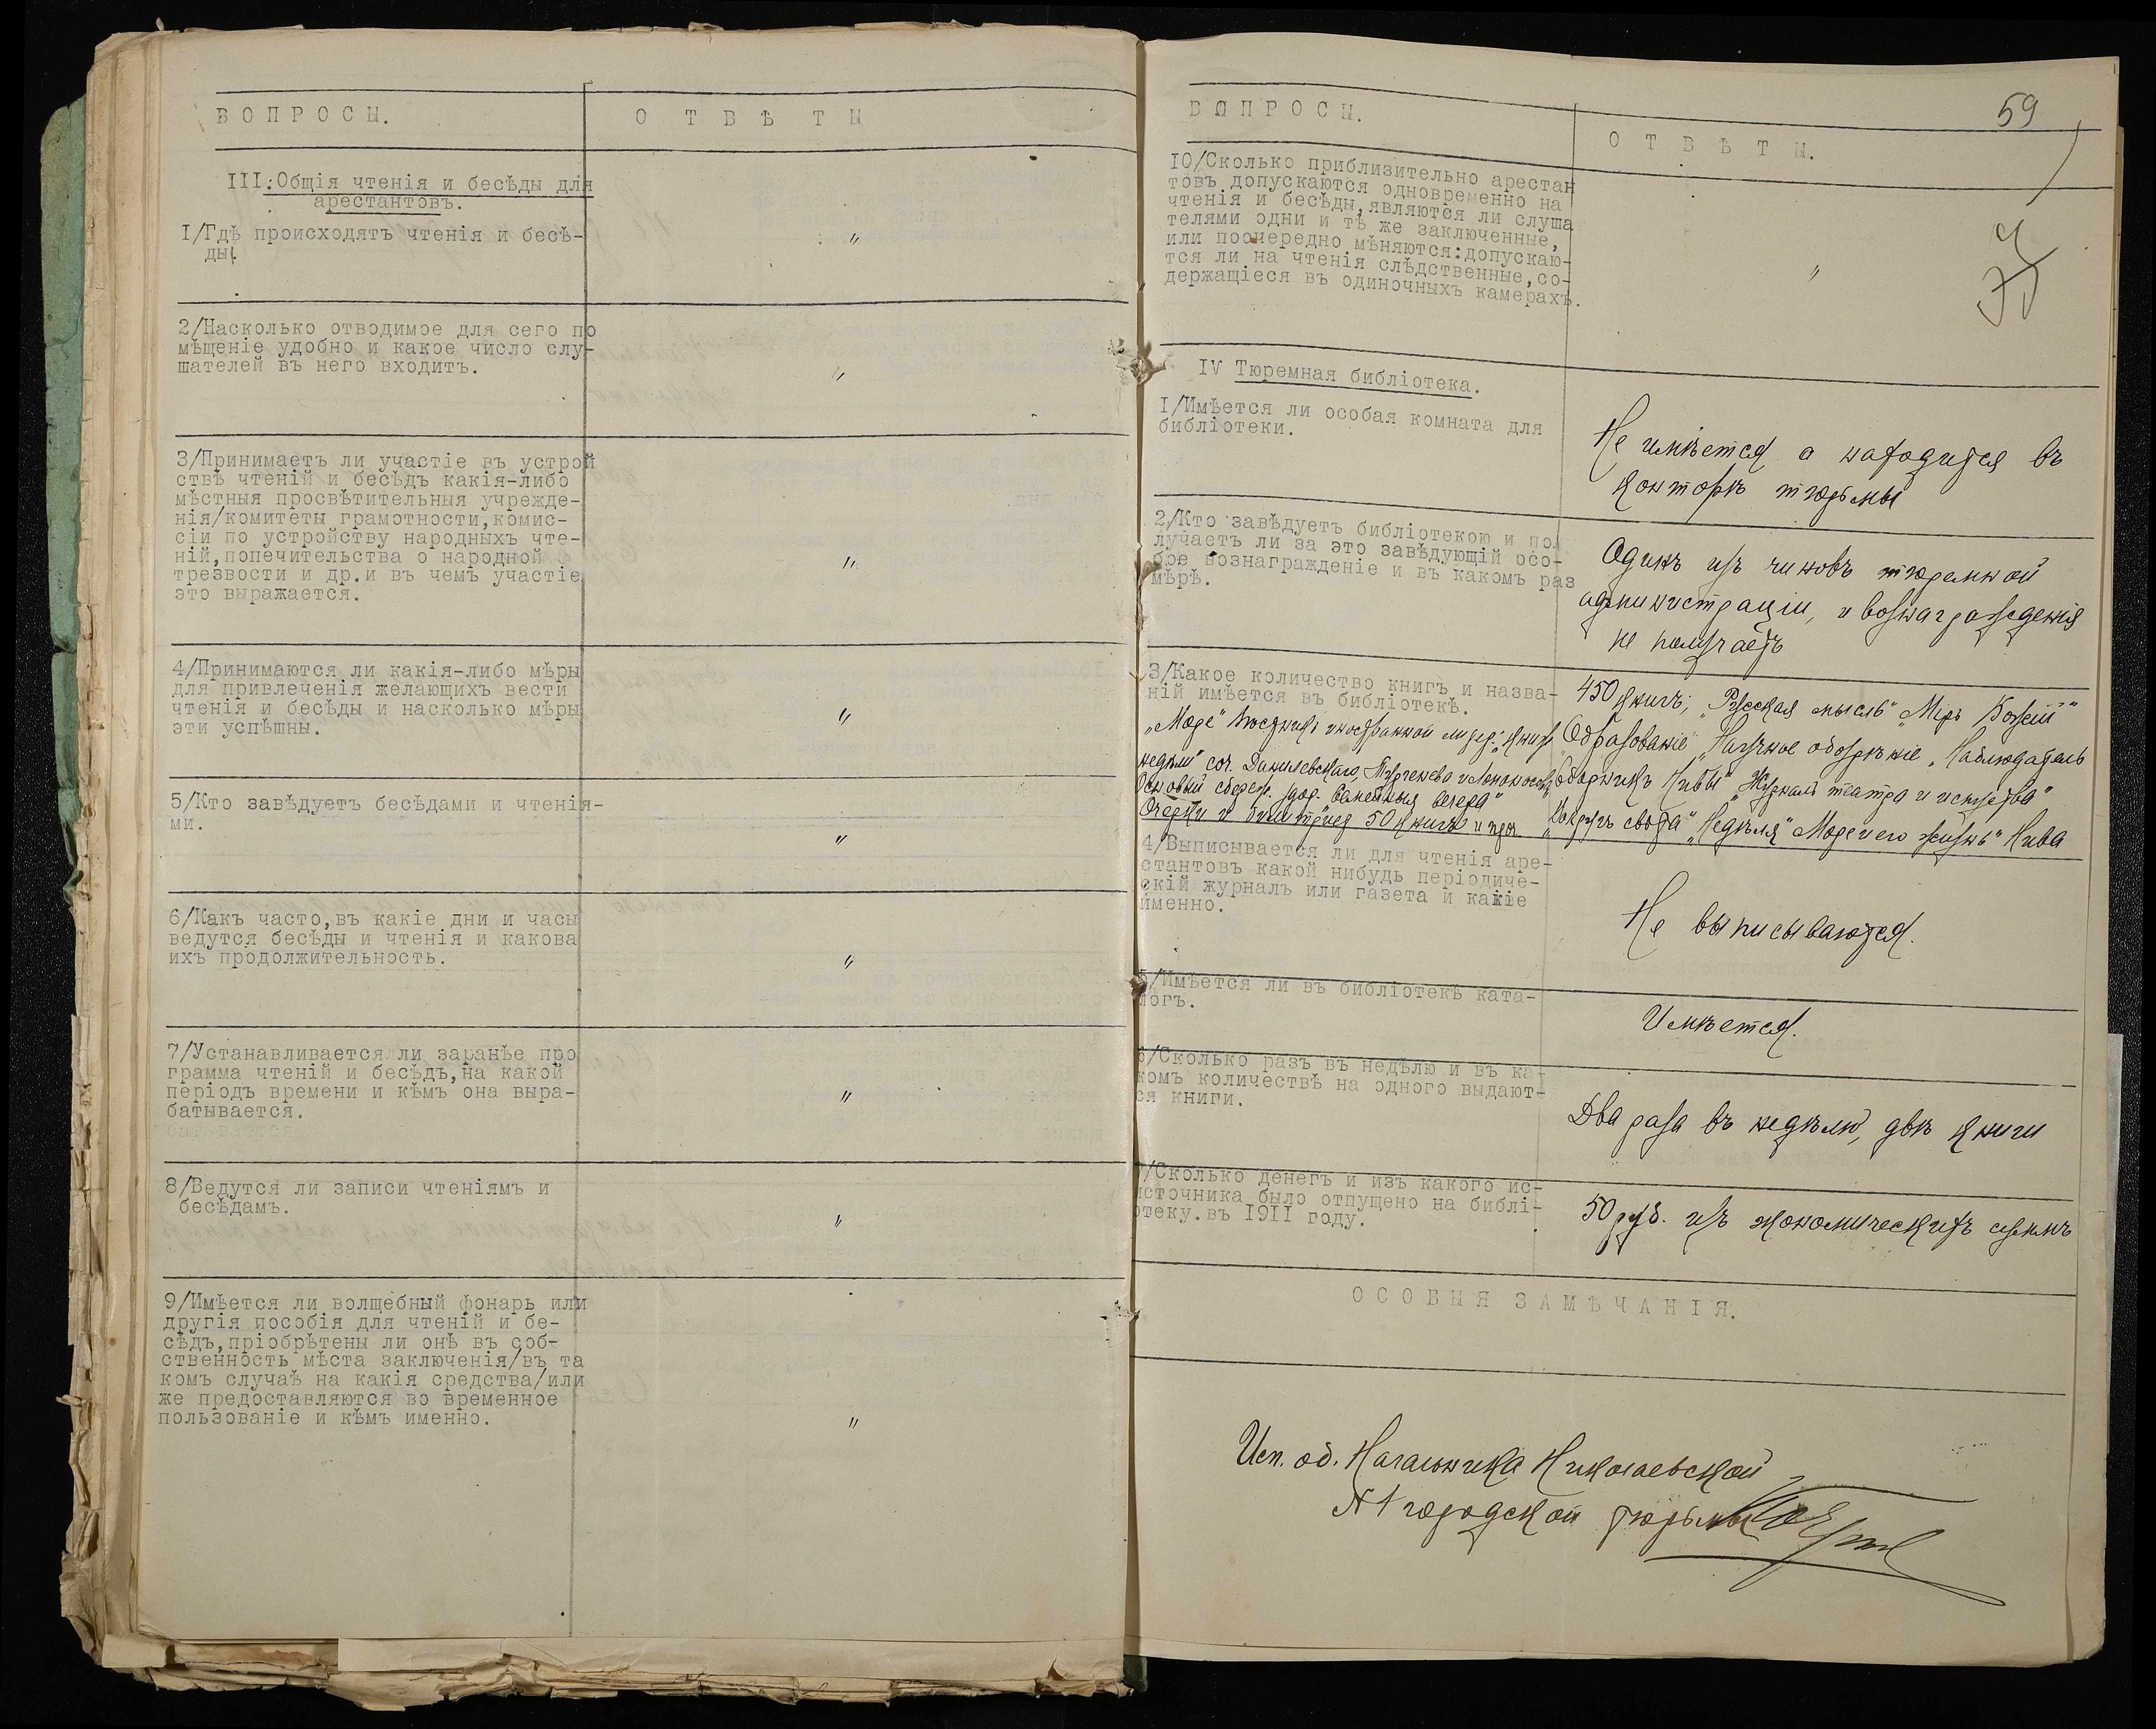 ВОПРОСЫ.
О Т В Ѣ Т Ы
III.Общія чтенія и бесѣды для
арестантовъ.
I/Гдѣ происходятъ чтенія и бесѣ-
ды.
"
2/Насколько отводимое для сего по
мѣщеніе удобно и какое число слу-
шателей въ него входитъ.
"
3/Принимаетъ ли участіе въ устрой
ствѣ чтеній и бесѣдъ какія-либо
мѣстныя просвѣтительныя учрежде-
нія/комитеты грамотности,комис-
сіи по устройству народныхъ чте-
ній,попечительства о народной
трезвости и др.и въ чемъ участіе
это выражается.
"
4/Принимаются ли какія-либо мѣры
для привлеченія желающихъ вести
чтенія и бесѣды и насколько мѣры
эти успѣшны.
"
5/Кто завѣдуетъ бесѣдами и чтенія-
ми.
"
6/Какъ часто,въ какіе дни и часы
ведутся бесѣды и чтенія и какова
ихъ продолжительность.
"
7/Устанавливается ли заранѣе про
грамма чтеній и бесѣдъ,на какой
періодъ времени и кѣмъ она выра-
батывается.
"
8/Ведутся ли записи чтеніямъ и
бесѣдамъ.
"
9/Имѣется ли волшебный фонарь или
другія пособія для чтеній и бе-
сѣдъ,пріобрѣтены ли онѣ въ соб-
ственность мѣста заключенія/въ та
комъ случаѣ на какія средства/или
же предоставляются во временное
пользованіе и кѣмъ именно.
"
59
ВОПРОСЫ.
О Т В Ѣ Т Ы.
10/Сколько приблизительно арестан
товъ допускаются одновременно на
чтенія и бесѣды,являются ли слуша
телями одни и тѣ же заключенные,
или поочередно мѣняются:допускаю-
тся ли на чтенія слѣдственные,со-
держащіеся въ одиночныхъ камерахъ.
"
IV Тюремная библіотека.
I/Имѣется ли особая комната для
библіотеки.
Не имѣется а находится въ
конторѣ тюрьмы
2/Кто завѣдуетъ библіотекою и по
лучаетъ ли за это завѣдующій осо-
бое вознагражденіе и въ какомъ раз
мѣрѣ.
Одинъ изъ чиновъ тюремной
администраціи, и вознагражденія
не получаетъ
3/Какое количество книгъ и назва-
ній имѣется въ библіотекѣ.
450 книгъ; „Русская мысль" „Миръ Божій"
„Образованіе" „Научное обозрѣніе „Наблюдатель
„Сборникъ Нивы" „Журналъ театра и искуства"
„Вокругъ свѣта" „Недѣля" „Море и его жизнь" Нива
„Море" Вѣстникъ иностранной литер: „книги
недѣли" соч. Данилевскаго, Тургенева и Ломоносова
Основы сбереж. здор. вечера"
Очерки и 50 книгъ и проч.
4/Выписывается ли для чтенія аре-
стантовъ какой нибудь періодиче-
скій журналъ или газета и какіе
именно.
Не выписываются.
5/Имѣется ли въ библіотекѣ ката-
логъ.
Имѣется.
6/Сколько разъ въ недѣлю и въ ка-
комъ количествѣ на одного выдают-
ся книги.
Два раза въ недѣлю, двѣ книги
7/Сколько денегъ и изъ какого ис-
источника было отпущено на библі-
отеку.въ 1911 году.
50 руб. изъ экономическихъ суммъ
ОСОБЫЯ ЗАМѢЧАНІЯ.
Исп. об. Начальника Николаевской
№ 1 городской тюрьмы